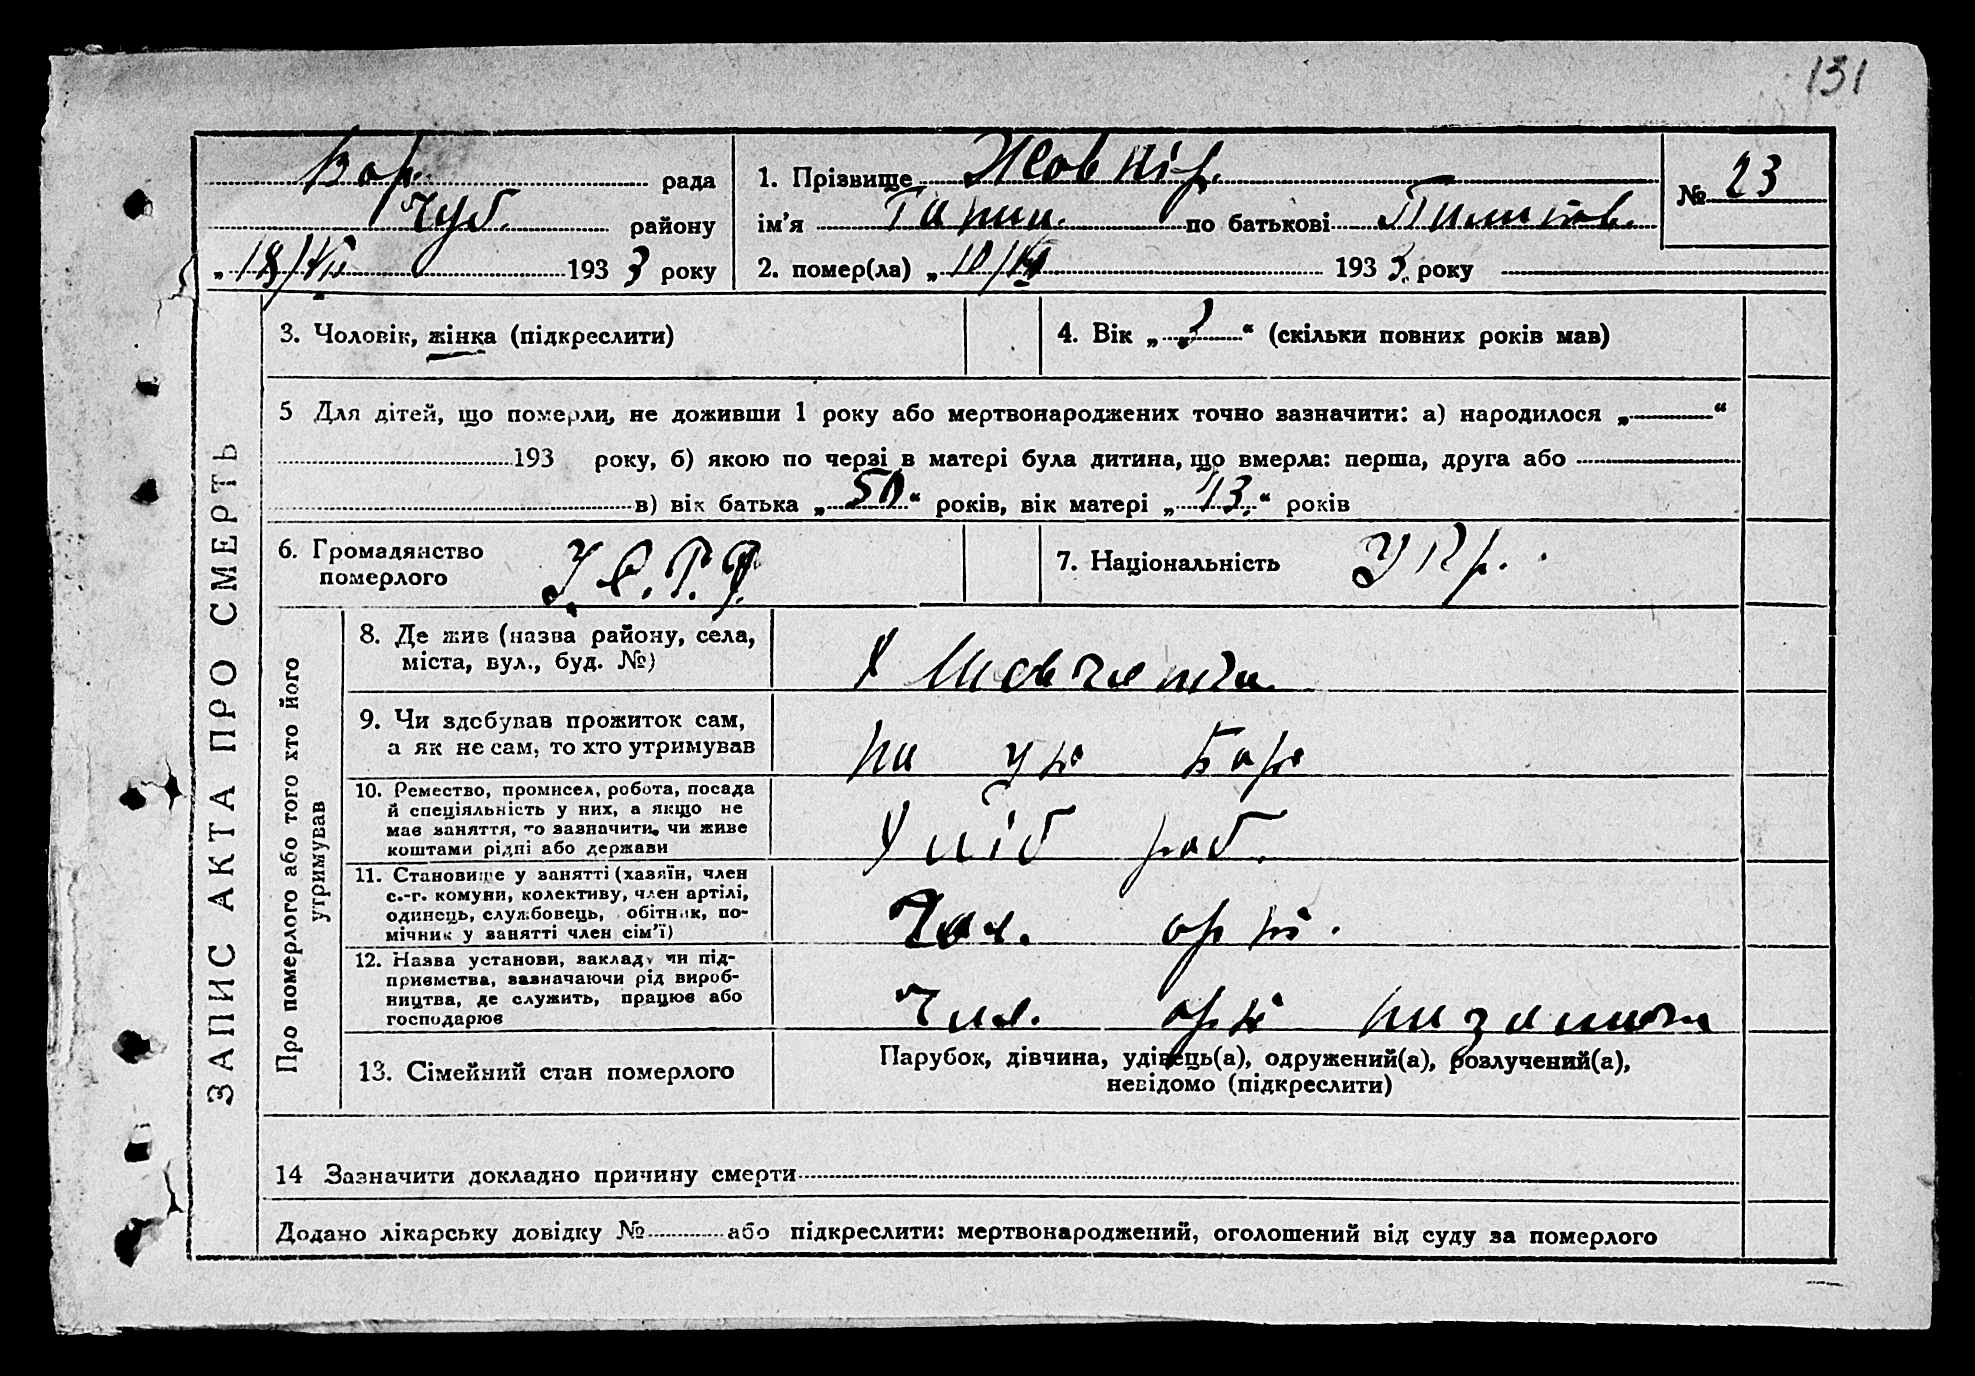 131
Вор. рада
Чуб. району
„18/VI 1933 року
1. Прізвище Жовнір.
ім'я Ганна. по батькові
2. помер(ла) „10/ 1933. року
№ 23
ЗАПИС АКТА ПРО СМЕРТЬ
3. Чоловік, жінка (підкреслити)
4. Вік „2“ (скільки повних років мав)
5 Для дітей, що померли, не доживши 1 року або мертвонароджених точно зазначити: а) народилося „ “
193 року, б) якою по черзі в матері була дитина, що вмерла: перша, друга або
в) вік батька „50“ років, вік матері „43.“ років
6. Громадянство
померлого
У.С.Р.Р.
7. Національність Укр.
Про померлого або того хто його
утримував
8. Де жив (назва району, села,
міста, вул., буд. №)
Х Шевченка.
9. Чи здобував прожиток сам,
а як не сам, то хто утримував
на
10. Ремество, промисел, робота, посада
й спеціяльність у них, а якщо не
мав заняття, то зазначити, чи живе
коштами рідні або держави
Хліб роб.
11. Становище у занятті (хазяїн, член
с.-г. комуни, колективу, член артілі,
одинець, службовець, обітник, по-
мічник у занятті член сім'ї)
Чл. арт.
12. Назва установи, закладу чи під-
приємства, зазначаючи рід вироб-
ництва, де служить, працює або
господарює
арт
13. Сімейний стан померлого
Парубок, дівчина, удівець(а), одружений(а), розлучений(а),
невідомо (підкреслити)
14 Зазначити докладно причину смерти
Додано лікарську довідку № або підкреслити: мертвонароджений, оголошений від суду за померлого